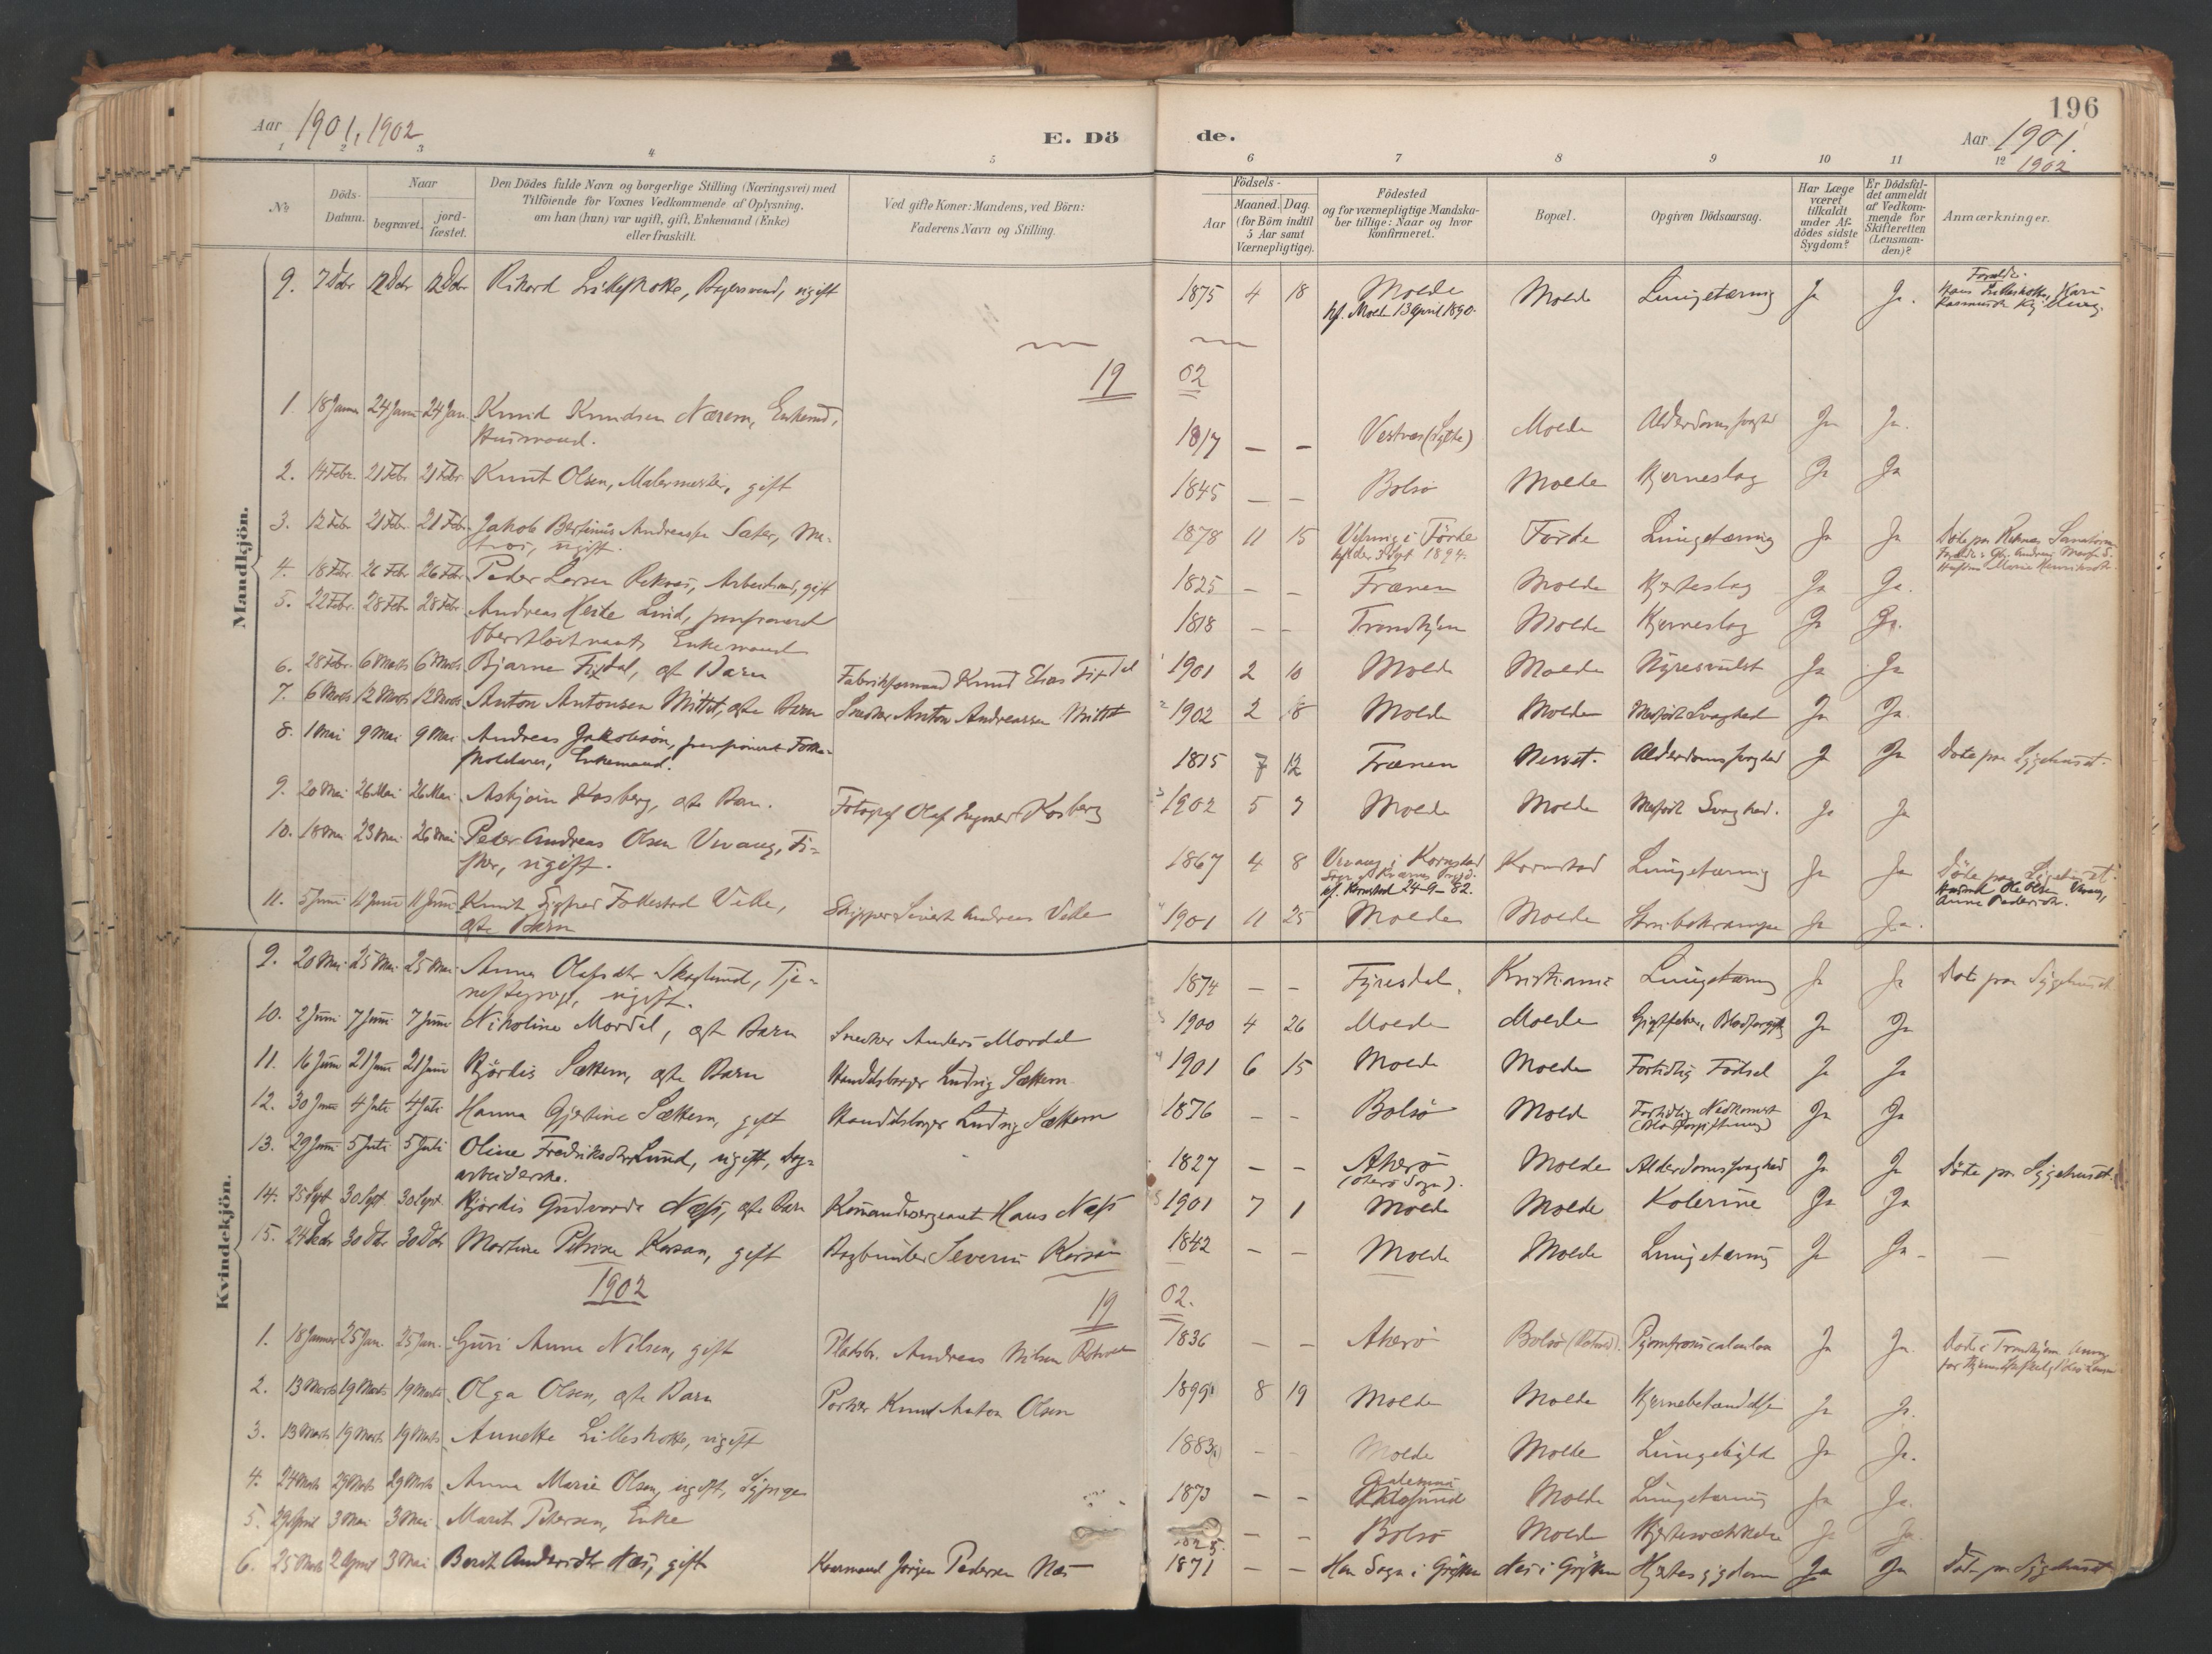 196
Aar 1901, 1902
E. Dö
de.
Aar 1901.
1902
1 2 3 4 5 6 7 8 9 10 11 12
No
Döds-Datum.
Naar
begravet.
jord-fæstet.
Den Dödes fulde Navn og borgerlige Stilling (Næringsvei) med
Tilföiende for Voxnes Vedkommende af Oplysning,
om han (hun) var ugift, gift, Enkemand (Enke)
eller fraskilt.
Ved gifte Koner: Mandens, ved Börn:
Faderens Navn og Stilling.
Födsels-
Aar
Maaned. Dag.
(for Börn indtil
5 Aar samt
Værnepligtige).
Födested
og for værnepligtige Mandska-
ber tillige: Naar og hvor
konfirmeret.
Bopæl.
Opgiven Dödsaarsag.
Har Læge
været
tilkaldt
under Af-
dödes sidste
Sygdom?
Er Dödsfal-
det anmeldt
af Vedkom-
mende for
Skifteretten
(Lensman-
den)?
Anmærkninger.
Mandkjön.
9. 7 Dcbr 12 Dcbr 12 Dcbr Rikard Lilleskotte, ugift 1875 4 18 Molde Molde Lungetæring Ja Ja. Forældre:
kf. Molde 13 April 1890. Hans Lilleskotte, Kari
19 02
1. 18 Januar 24 Janu 24 Jan. Knud Knudsen Nærem, Enkemd, 1817 – – Vestnes (Sylte) Molde Alderdomssvaghed Ja Ja.
Husmand.
2. 14 Febr. 21 Febr 21 Febr. Knut Olsen, Malermester, gift 1845 – – Bolsö Molde Hjerneslag Ja Ja
3. 12 Febr 21 Febr. 21 Febr. Jakob Bertinus Andreassen Sæter, Ma- 1878 11 15 i Förde Förde Lungetæring Ja Ja Döde paa Reknes Sanatorium
tros, ugift. 1894.
4. 18 Febr. 26 Febr 26 Febr Peder Larsen Reknes, Arbeidsmd, gift 1825 – – Frænen Molde Hjerteslag Ja Ja.
5. 22 Febr. 28 Febr 28 Febr. Andreas Heite Lind, pensioneret 1818 – – Trondhjem Molde Hjerneslag Ja Ja.
Oberstlöitnant, Enkemand
6. 28 Febr. 6 Marts 6 Marts Bjarne Fixdal, ægte Barn Fabrikformand Knud Elias Fixdal 1901 2 10 Molde Molde Nyresvulst Ja Ja
7. 6 Marts 12 Marts 12 Marts Anton Antonsen Mittet, ægte Barn Snedker Anton Andreassen Mittet 1902 2 18 Molde Molde Medfödt Svaghed Ja Ja.
8. 1 Mai 9 Mai 9 Mai Andreas Jakobsön, pensioneret Folke- 1815 7 12 Frænen Nesset. Alderdomssvaghed Ja Ja Döde paa Sygehuset.
skolelærer, Enkemand.
9. 20 Mai 26 Mai 26 Mai. Asbjörn Kosberg, ægte Barn. Fotograf Olaf Ingmar Kosberg 1902 5 7 Molde Molde Medfödt Svaghed. Ja Ja
10. 18 Mai 23 Mai 26 Mai Peter Andreas Olsen Vevang, Fi- 1867 4 8 Vevang i Kornstad Kornstad Lungetæring Ja Ja Döde paa Sygehuset.
sker, ugift. kf. Kornstad 24-9-82. Ole Olsen Vevang,
11. 5 Juni 11 Juni 11 Juni Knut Sigfred Folkestad Velle, Skipper Sivert Andreas Velle 1901 11 25 Molde Molde Strubekrampe Ja Ja.
ægte Barn
Kvindekjön.
9. 20 Mai 25 Mai 25 Mai. Anna Olafsdtr Skoglund, Tje- 1874 – – Fyresdal. Kristiania Lungetæring Ja Ja Döde paa Sygehuset
nestepige, ugift.
10. 2 Juni 7 Juni 7 Juni Nikoline Mordal, ægte Barn Snedker Anders Mordal 1900 4 26 Molde Molde Gigtfeber, Blodforgiftg Ja Ja
11. 16 Juni 21 Juni 21 Juni Hjördis Sættem, ægte Barn Handelsborger Ludvig Sættem 1901 6 15 Molde Molde Fortidlig Födsel Ja Ja
12. 30 Juni 4 Juli 4 Juli Hanna Gjertine Sættem, gift Handelsborger Ludvig Sættem 1876 – – Bolsö Molde Fortidlig Nedkomst Ja Ja
(Blodforgiftning)
13. 29 Juni 5 Juli 5 Juli Oline Fredriksdtr Lund, ugift, Dag- 1827 – – Akerö Molde Alderdomssvaghed Ja Ja Döde paa Sygehuset.
arbeiderske. (Akerö Sogn).
14. 25 Sept 30 Sept. 30 Sept. Hjördis Gudvarda Næss, ægte Barn Kommandersergeant Hans Næss 1901 7 1 Molde Molde Kolerine Ja Ja
15. 24 Dcbr 30 Dcbr 30 Dcbr Martine Petrine Korsan, gift Bogbinder Severin Korsan 1842 – – Molde Molde Lungetæring Ja Ja –
1902
19 02.
1. 18 Januar 25 Jan. 25 Jan. Guri Anna Nilsen, gift Pladsbr. Andreas Nilsen 1836 – – Akerö Bolsö Ja Ja. Döde i Trondhjem
2. 13 Marts 19 Marts 19 Marts Olga Olsen, ægte Barn Portier Knud Anton Olsen 1899 8 19 Molde Molde Hjernebetændelse Ja Ja.
3. 13 Marts 19 Marts 19 Marts Annette Lilleskotte, ugift 1883 – – Molde Molde Lungebyld Ja Ja.
4. 24 Marts 29 Marts 29 Marts Anna Marie Olsen, ugift, Sypige 1873 – – Aalesund Molde Lungetæring Ja Ja.
5. 29 April 3 Mai 3 Mai Marit Petersen, Enke – – Bolsö Molde Ja Ja.
6. 25 Marts 2 April 3 Mai Berit Andersdtr Næs, gift Jörgen Pedersen Næs 1871 – – Hen Sogn i Grytten Næs i Grytten Hjertesygdom Ja Ja Döde paa Sygehuset